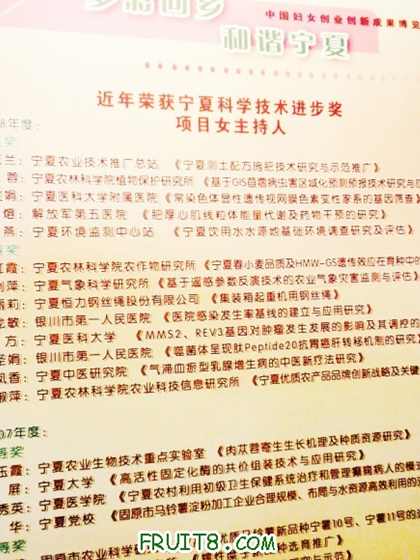 中国妇女创业创新成果博览
和谐宁夏
近年荣获宁夏科学技术进步奖
项目女主持人
8年度：
奖
兰：宁夏农业技术推广总站 《宁夏测土配方施肥技术研究与示范推广》
蓉：宁夏农林科学院植物保护研究所 《基于GS苜蓿病虫害区域化预测预报技术研究与应
娟：宁夏医科大学附属医院 《常染色体显性遗传视网膜色素变性家系的基因筛查》
焰：解放军第五医院 《肥厚心肌线粒体能量代谢及药物干预的研究》
燕：宁夏环境监测中心站 《宁夏饮用水水源地基础环境调查研究及评估》
奖
红霞：宁夏农林科学院农作物研究所 《宁夏春小麦品质及HMW-GS遗传效应在育种中的
剑萍：宁夏气象科学研究所 《基于遥感参数反演技术的农业气象灾害监测与评估》
莉：宁夏恒力钢丝绳股份有限公司 《集装箱起重机用钢丝绳》
敏：银川市第一人民医院 《医院感染发生率基线的建立与应用研究》
方：宁夏医科大学 《MMS2、REV3基因对肿瘤发生发展的影响及其调控的
娟：银川市第一人民医院 《噬菌体呈现肽Peptide20抗胃癌肝转移机制的研究》
凤香：宁夏中医研究院 《气滞血瘀型乳腺增生病的中医新疗法研究》
淑萍：宁夏农林科学院农业科技信息研究所 《宁夏优质农产品品牌创新战略及关键
07年度：
等奖
玉霞：宁夏农业生物技术重点实验室 《肉苁蓉寄生生长机理及种质资源研究》
屏：宁夏大学 《高活性固定化酶的共价组装技术与应用研究》
秀英：宁夏医学院 《宁夏农村利用初级卫生保健系统治疗和管理癫痫病人的模
华：宁夏党校 《固原市马铃薯淀粉加工企业合理规模、布局与水资源高效利用的
等奖
固原市农业科学研究所
马铃薯新品种宁薯10号、宁薯11号的
示范推广》
FRUIT8.COM